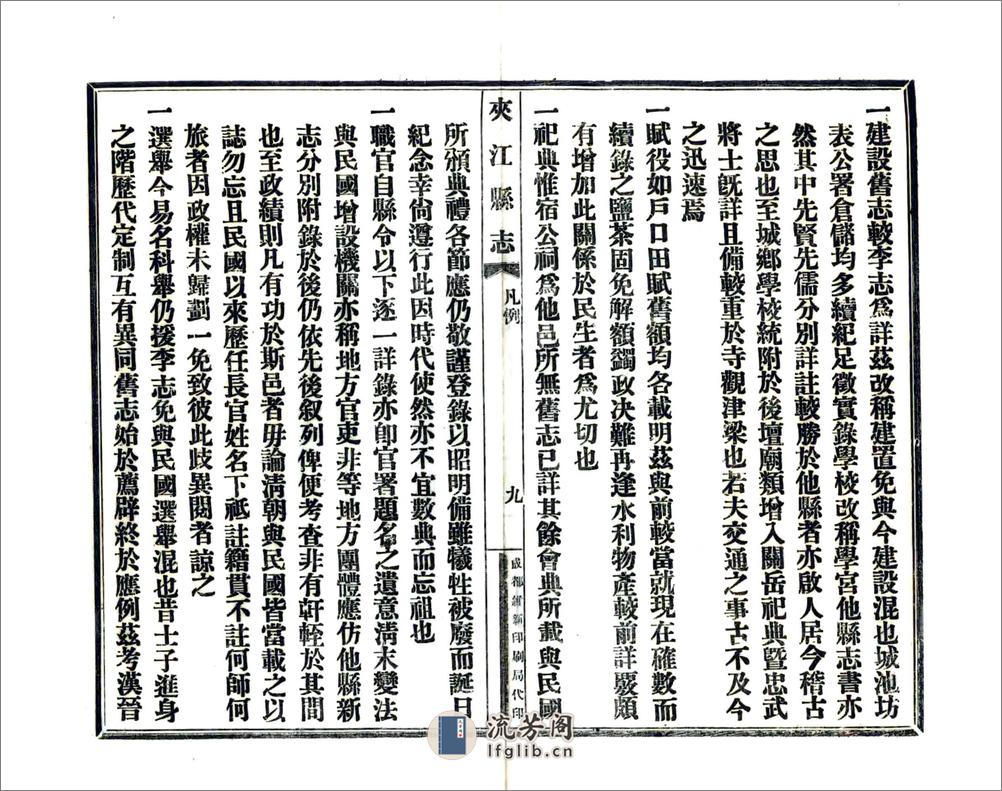 一建設舊志較李志爲詳茲改稱建置免與今建設混也城池坊
表公署倉儲均多續紀足徵實錄學校改稱學宮他縣志書亦
然其中先賢先儒分別詳註較勝於他縣者亦啟人居今稽古
之思也至城鄉學校統附於後壇廟類增入關岳祀典暨忠武
將士既詳且備較重於寺觀津梁也若夫交通之事古不及今
之迅速焉
一賦役如戶口田賦舊額均各載明茲與前較當就現在確數而
續錄之鹽茶固免解額蠲政決難再逢水利物產較前詳覈頗
有增加此關係於民生者爲尤切也
一祀典惟宿公祠爲他邑所無舊志已詳其餘會典所載與民國
夾江縣志
凡例
九
成都維新印刷局代印
所頒典禮各節應仍敬謹登錄以昭明備雖犧牲被廢而誕日
紀念幸尚遵行此因時代使然亦不宜數典而忘祖也
一職官自縣令以下逐一詳錄亦卽官署題名之遺意淸末變法
與民國增設機關亦稱地方官吏非等地方團體應仿他縣新
志分別附錄於後仍依先後叙列俾便考查非有軒輊於其間
也至政績則凡有功於斯邑者毋論淸朝與民國皆當載之以
誌勿忘且民國以來歷任長官姓名下祇註籍貫不註何師何
旅者因政權未歸劃一免致彼此歧異閱者諒之
一選舉今易名科舉仍援李志免與民國選舉混也昔士子進身
之階歷代定制互有異同舊志始於薦辟終於應例茲考漢晉
流芳阁
lfglib.cn